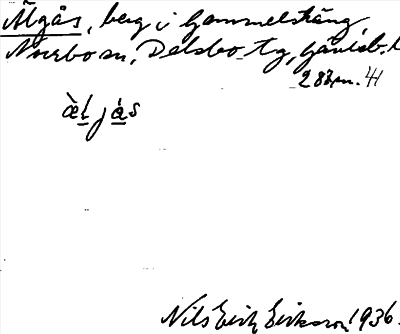 Älgås, berg i Gammelsträng,
Norrbo sn, Delsbo tg, Gävleb. l
283m. 41
æ̀l jás
Nils Erik Eriksson 1936.